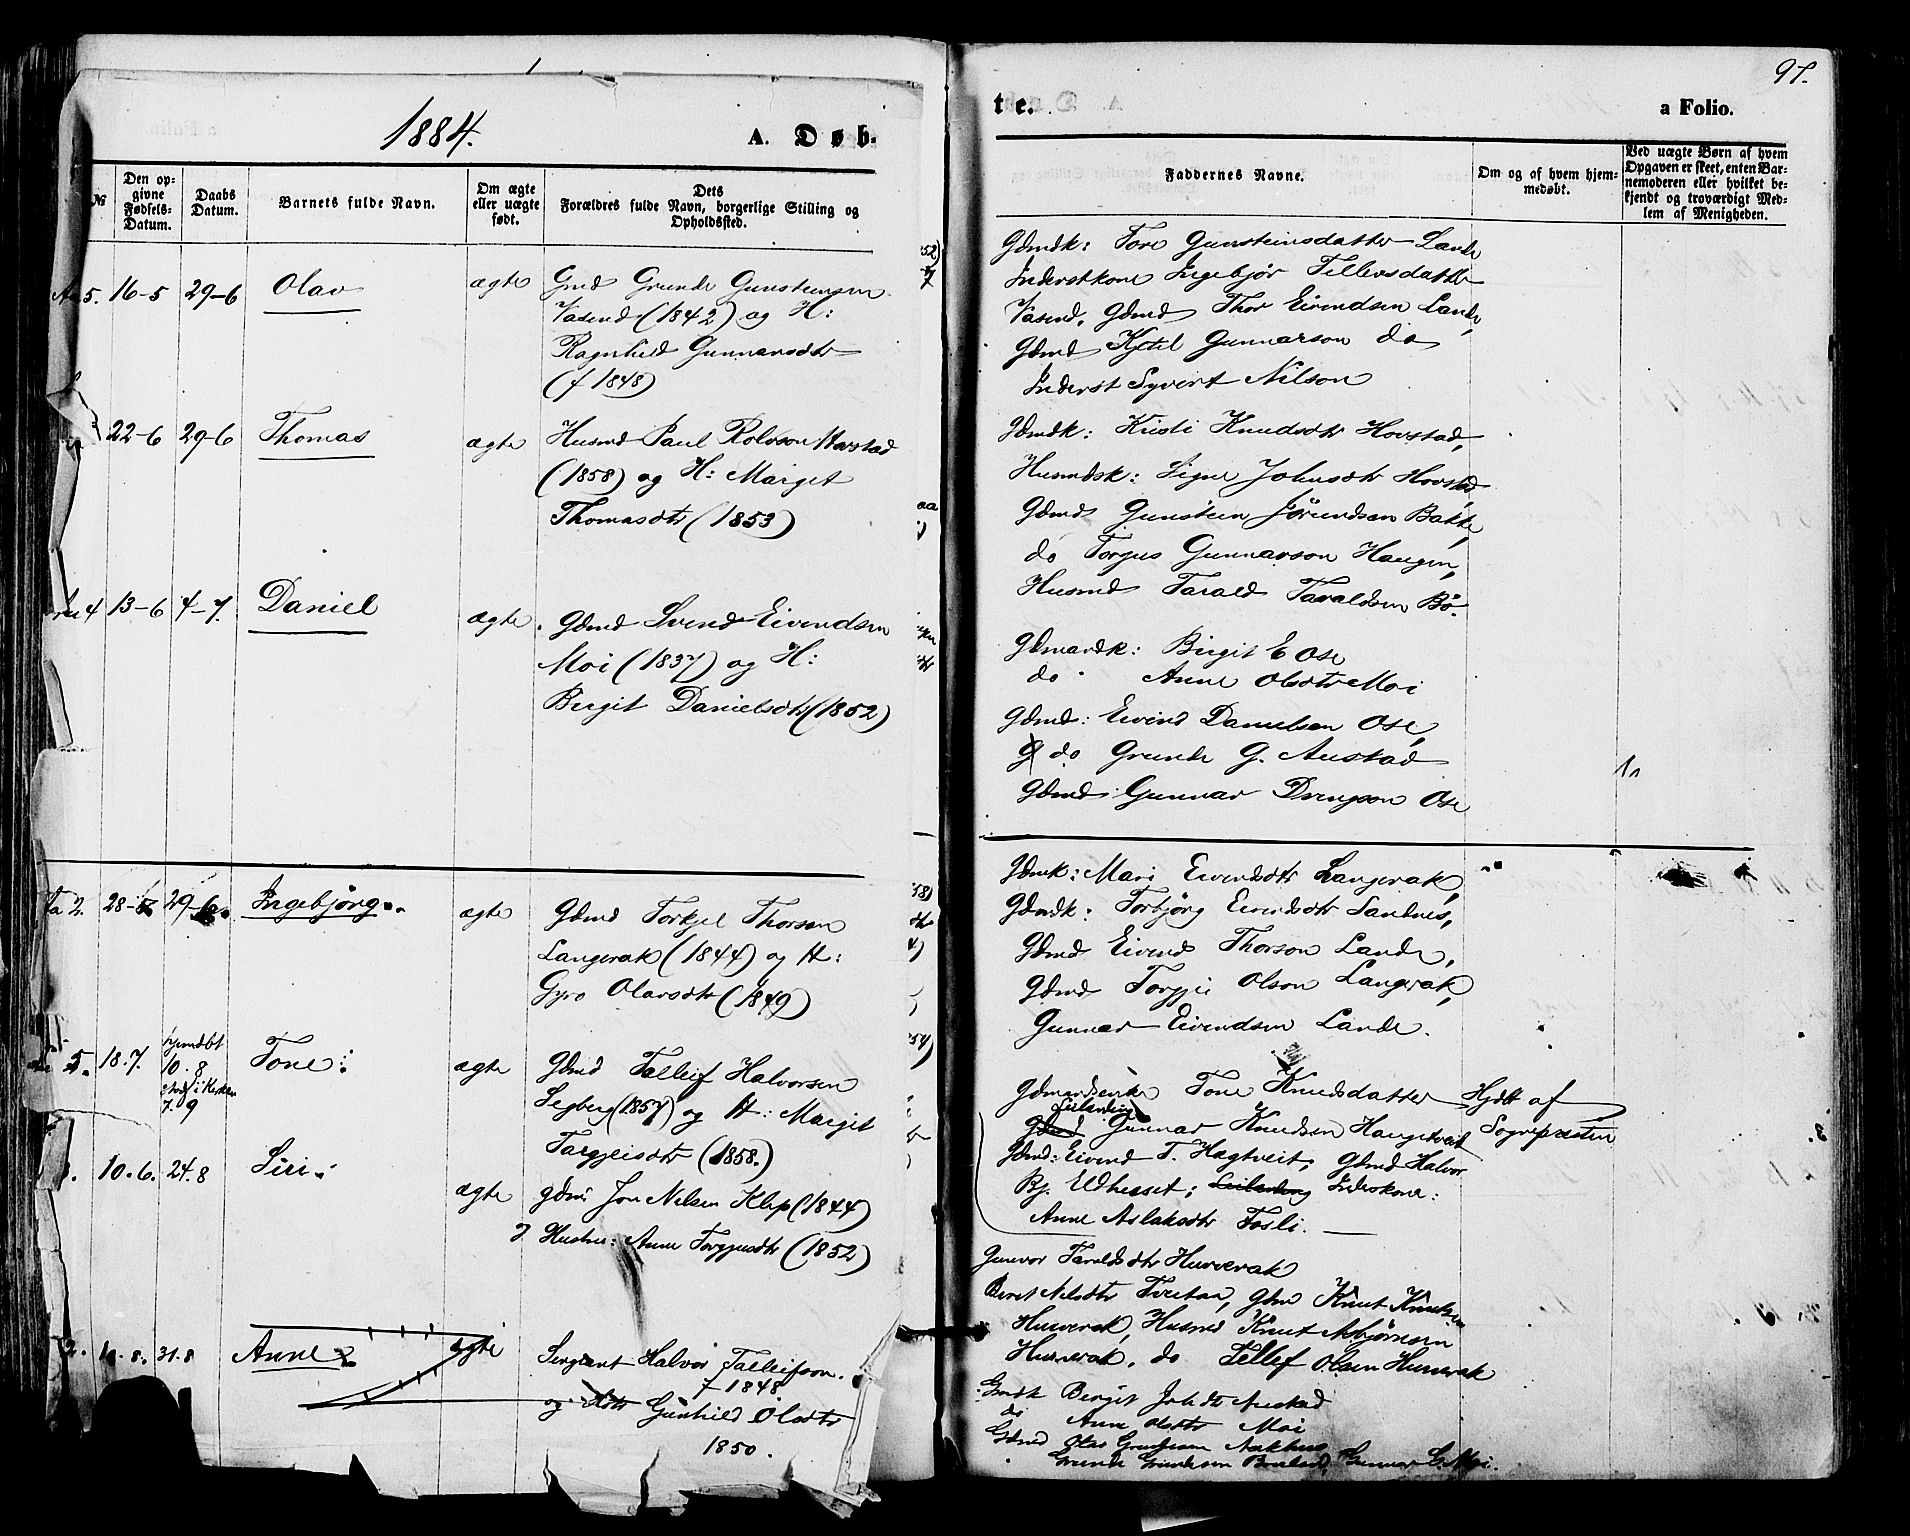 1884.
A. Døb-
№
Den op-
givne
Fødsels-
Datum.
Daabs
Datum.
Barnets fulde Navn.
Om ægte
eller uægte
født.
Dets
Forældres fulde Navn, borgerlige Stilling og
Opholdssted.
5. 16-5 29-6 Olav ægte Gmd Grunde Gunsteinsen
Vasend (1842) og H:
Ragnhild Gunnarsdtr
(f 1848)
22-6 29-6 Thomas ægte Husmd Paul Rolvson Harstad
(1858) og H: Margit
Thomasdtr (1853)
4 13-6 4-7. Daniel ægte. Gdmd Svend Eivendsen
Moi (1837) og H:
Bergit Danielsdtr (1852)
2. 28- 29-6 Ingebjörg ægte Gdmd Torkjel Thorsen
Langerak (1844) og H:
Gyro Olavsdtr (1849)
5. 18.7. hjemdbt
10.8
i Kirken
7.9 Tone ægte Gdmd Talleif Halvorsen
Segberg (1857) og H: Margit
Targjeisdtr (1858.)
10.6. 24.8 Siri ægte gdmd Jon Nelsen Klep (1844)
Hustru: Anne Torgjusdtr (1852)
2. 8. 31.8 Anne ægte Sergeant Halvor Talleifson.
f 1848
og Gunhild Olsdtr
1850.
te.
a Folio.
97.
Faddernes Navne.
Om og af hvem hjem-
medøbt.
Ved uægte Børn af hvem
Opgaven er skeet, enten Bar-
nemoderen eller hvilket be-
kjendt og troværdigt Med-
lem af Menigheden.
Gdmdk: Tore Gunsteinsdatter Lande
Inderstkone Ingebjør Tellevsdatter
Vasend, Gdmd Thor Eivendsen Lande,
Gdmd Kjetil Gunnarson do
Inderst Syvert Nilson
Gdmdk: Kristi Knudsdtr Hovstad,
Husmdsk: Signe Johnsdtr Hovstad
Gdmd Gunstein Jörundsen Bakke,
do Torgus Gunnarson Haugen,
Husmd Tarald Taraldsen Bö.
Gdmandk: Birgit E Ose
do Anne Olsdtr Moi
Gdmd: Eivind Danielsen Ose,
do Grunde G. Austad
Gdmd Gunnar Drengson Ose
Gdmk: Mari Eivendsdtr Langerak,
Gdmdk: Torbjörg Eivendsdtr Sandnes,
Gdmd Eivend Thorson Lande,
Gdmd Torgje Olson Langerak,
Gunnar Eivendsen Lande.
Gdmandsenke Tone Knudsdatter Hjdbt af
Gunnar Knudsen Haugtveit Sognepresten
Gdmd: Eivend T. Hagtveit, Gdmd Halvor
Bj. Uldhesset; Inderskone:
Anne Aslaksdtr Fosli.
Gunvor Taraldsdtr Hurverak
Beret Nelsdtr Tveitaa, gdm Knut Knutsen
Hurverak, Husmd Knut Asbjörnson
Hurverak, do Tellef Olsen Hurverak
Gmdk Bergit Austad
do Anne Olsdtr Moi
Gdmd Olav Aakhus
Grunde Grundeson Gunnar Moi.